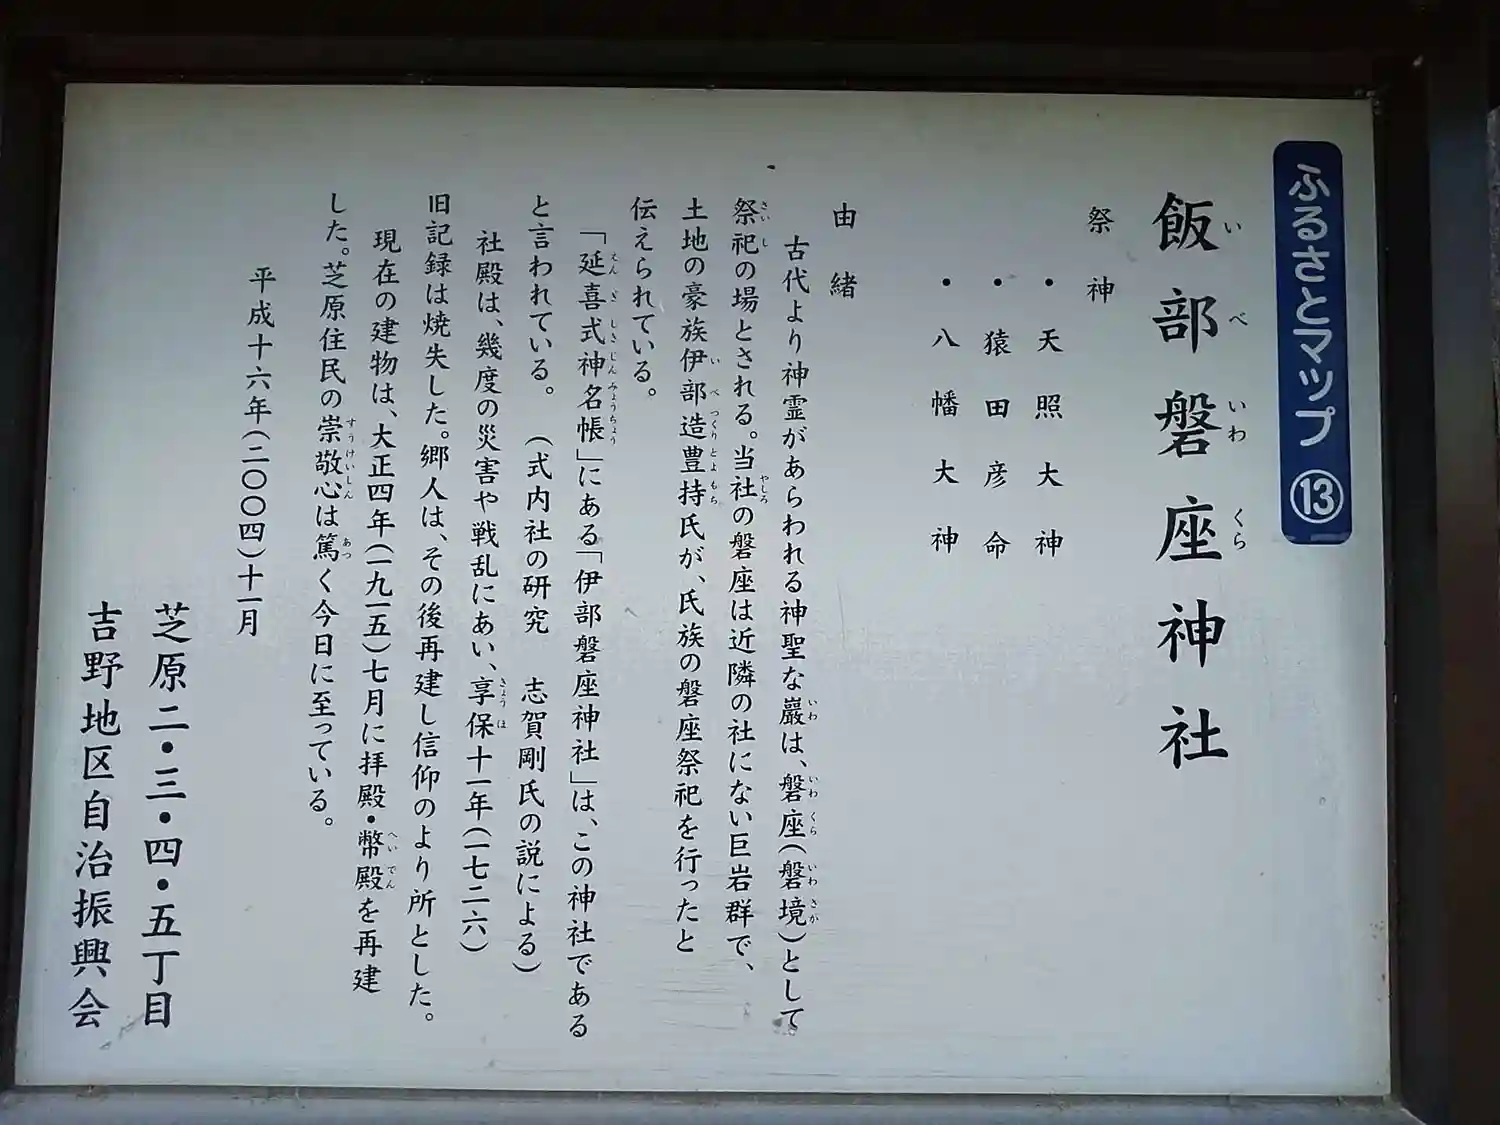 ふるさとマップ ⑬
飯部磐座神社
いべいわくら
祭神
・天照大神
・猿田彦命
・八幡大神
由緒
古代より神霊があらわれる神聖な巌は、磐座（磐境）として
いわ いわくら いわさか
祭祀の場とされる。当社の磐座は近隣の社にない巨岩群で、
さいし やしろ
土地の豪族伊部造豊持氏が、氏族の磐座祭祀を行ったと
いべつくりとよもち
伝えられている。
「延喜式神名帳」にある「伊部磐座神社」は、この神社である
えんぎしきじんみょうちょう
と言われている。（式内社の研究 志賀剛氏の説による）
社殿は、幾度の災害や戦乱にあい、享保十一年（一七二六）
きょうほ
旧記録は焼失した。郷人は、その後再建し信仰のより所とした。
現在の建物は、大正四年（一九一五）七月に拝殿・幣殿を再建
へいでん
した。芝原住民の崇敬心は篤く今日に至っている。
すうけいしん あつ
平成十六年（二〇〇四）十一月
芝原二・三・四・五丁目
吉野地区自治振興会